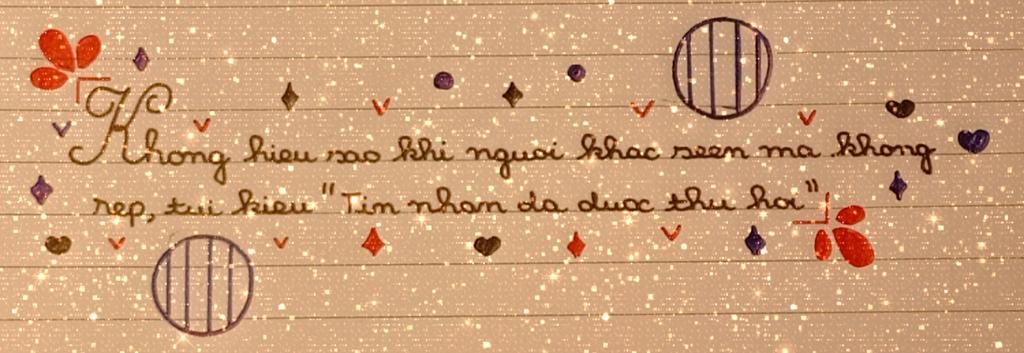 Khong hieu sao khi nguoi khac seen ma khong
rep, tui kieu "Tin nhan da duoc thu hoi"